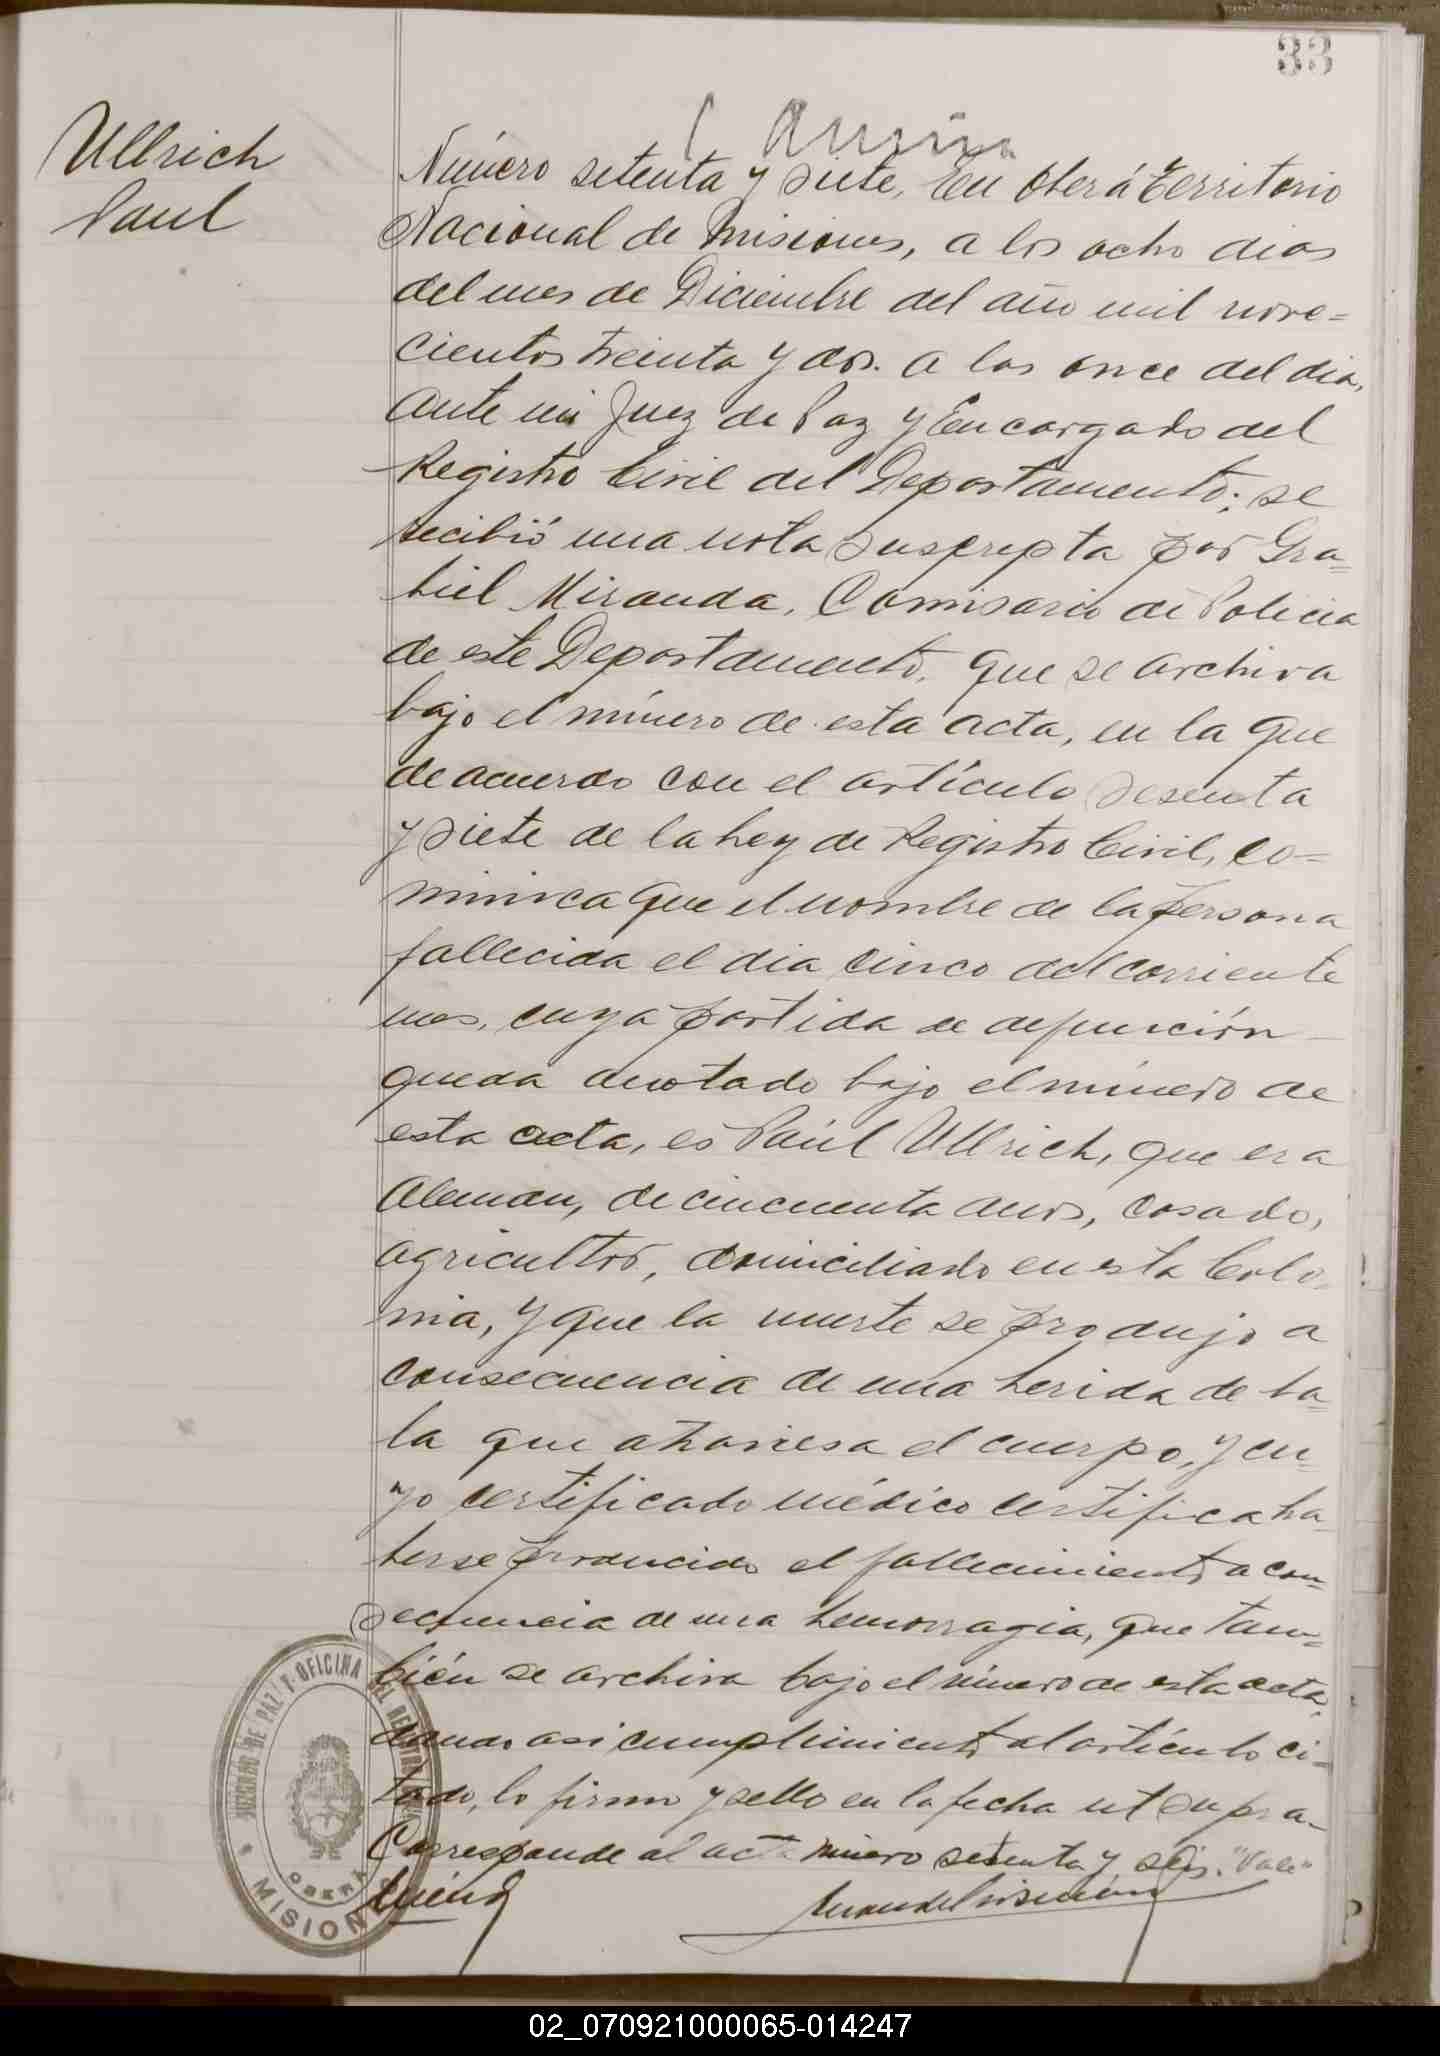 33
Ullrich
Paul
Número setenta y siete, En Oberá Territorio
Nacional de Misiones, a los ocho dias
del mes de Diciembre del año mil nove=
cientos treinta y dos. a las once del dia,
Ante mi Juez de Paz y Encargado del
Registro Civil del Departamento; se
recibió una nota suscripta por Gra=
biel Miranda, Comisario de Policia
de este Departamento. que se archiva
bajo el número de esta acta, en la que
de acuerdo con el artículo sesenta
y siete de la Ley de Registro Civil, co=
munica que el nombre de la persona
fallecida el dia cinco del corriente
mes, cuya partida de defunción
queda anotado bajo el número de
esta acta, es Paúl Ullrich, que era
Aleman, de cincuenta anos, casado,
agricultor, domiciliado en esta Colo
nia, y que la muerte se produjo a
consecuencia de una herida de ba=
la que atraviesa el cuerpo, y cu=
yo certificado médico certifica ha
berse producido el fallecimiento a con=
secuencia de una hemorragia, que tam=
bién se archiva bajo el número de esta acta,
dando asi cumplimiento al artículo ci=
tado, lo firmo y sello en la fecha ut supra-
Corresponde al acta número setenta y seis. "Vale"
JUZGADO DE PAZ Y OFICINA DEL REGISTRO
OBERÁ
MISION
02_070921000065-014247